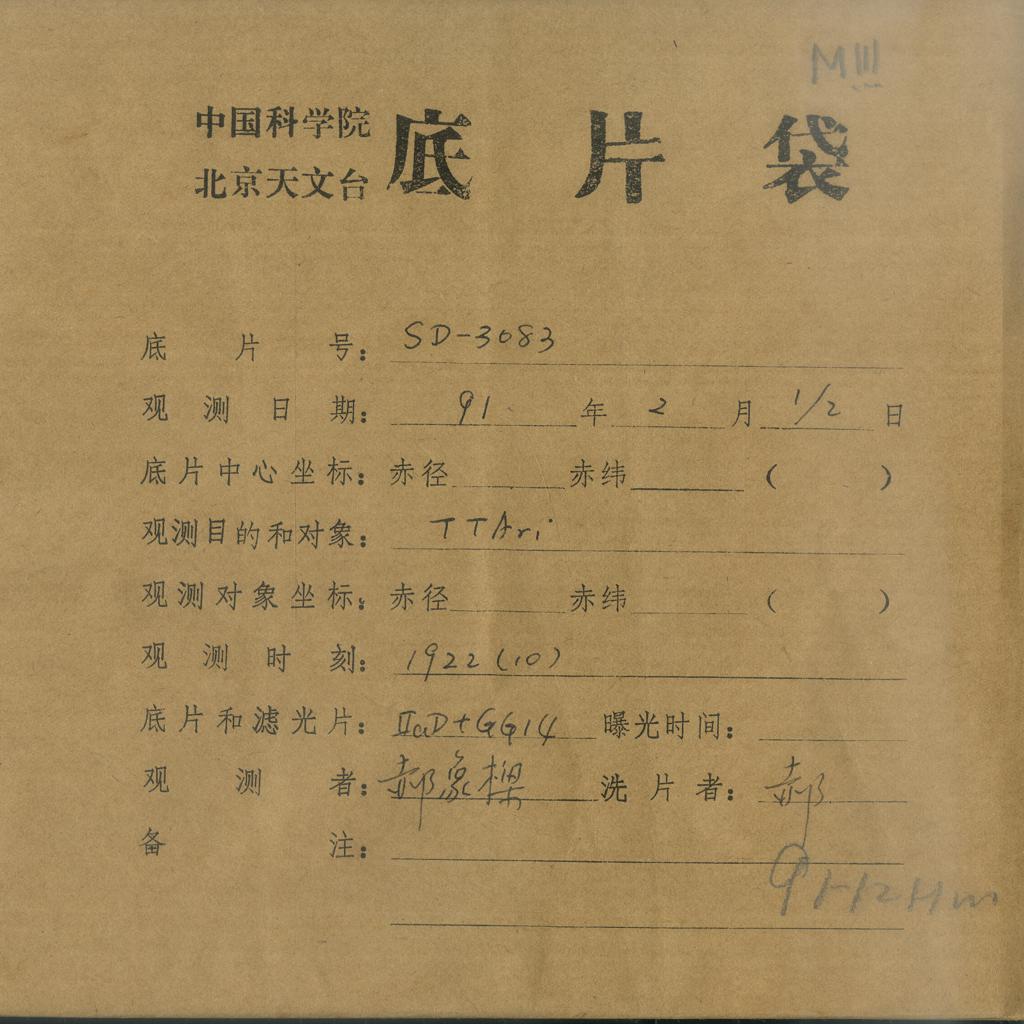 中国科学院
北京天文台
底片袋
底片号：SD-3083
观测日期：91年2月1/2日
底片中心坐标：赤径 赤纬 （ ）
观测目的和对象：TTAri
观测对象坐标：赤径 赤纬 （ ）
观测时刻：1922(10)
底片和滤光片：IIaD+GG14 曝光时间：
观测者：郝象樑 洗片者：郝
备注：